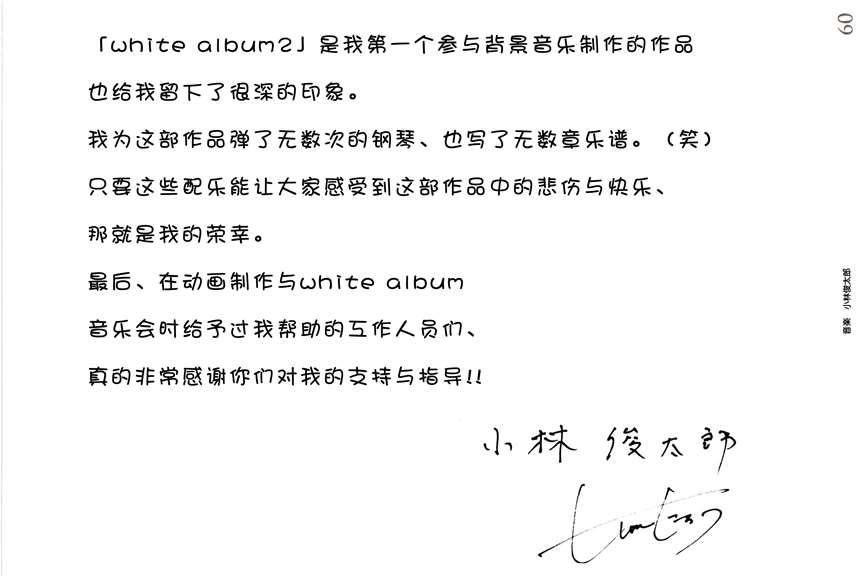 「white album2」是我第一个参与背景音乐制作的作品
也给我留下了很深的印象。
我为这部作品弹了无数次的钢琴、也写了无数章乐谱。（笑）
只要这些配乐能让大家感受到这部作品中的悲伤与快乐、
那就是我的荣幸。
最后、在动画制作与white album
音乐会时给予过我帮助的工作人员们、
真的非常感谢你们对我的支持与指导!!
小林 俊太郎
60
音楽 小林俊太郎